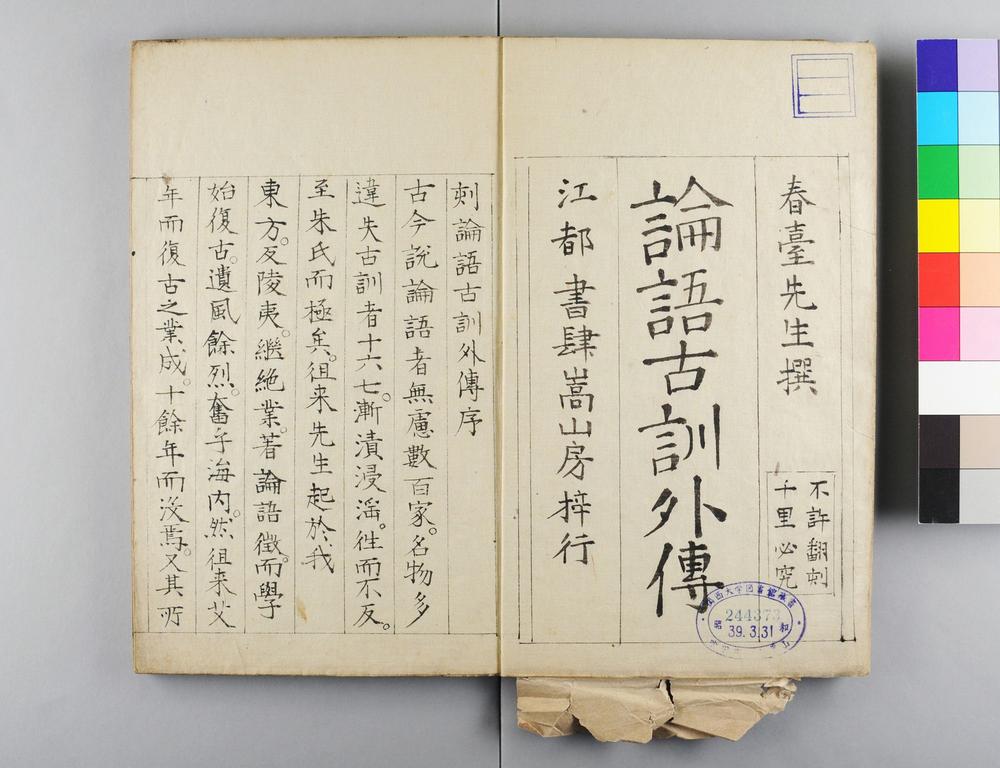 春臺先生撰
不許翻刻
千里必究
論語古訓外傳
江都書肆嵩山房梓行
244373
昭和
39.3.31
刻論語古訓外傳序
古今說論語者無慮數百家。名物多
違失古訓者十六七。漸漬浸滛。徃而不反。
至朱氏而極矣。徂来先生起於我
東方。反陵夷。繼絶業。著論語徵。而學
始復古。遺風餘烈。奮乎海内。然徂来艾
年而復古之業成。十餘年而没焉。又其所